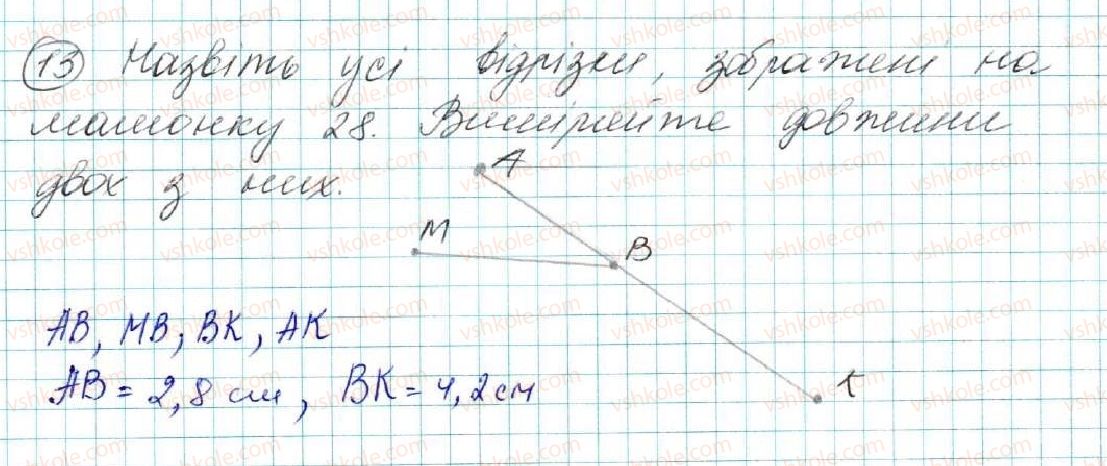 13 Назвіть усі відрізки, зображені на
малюнку 28. Виміряйте довжини
двох з них.
A
M
B
K
AB, MB, BK, AK
AB = 2,8 см, BK = 4,2 см
vshkole.com